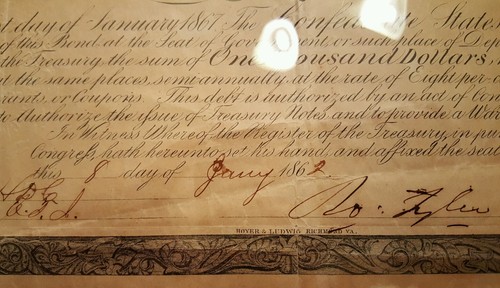 st day of January 1867. The Confede te States
of this Bond at the Seat of Gov ent, or such place of Dep
the Treasury, the sum of One Thousand Dollars,
at the same places, semi-annually, at the rate of Eight per
rants, or Coupons. This debt is authorized by an act of Con
to Authorize the issue of Treasury Notes and to provide a Wa
In Witness Whereof, the Register of the Treasury, in pu
Congress, hath hereunto set his hand, and affixed the seal
this 8 day of Jany 1862.
Ro: Tyler
HOYER & LUDWIG, RICHMOND VA.